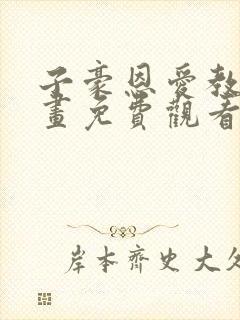 子豪恩愛教
畫免費觀看
岸本齊史大久